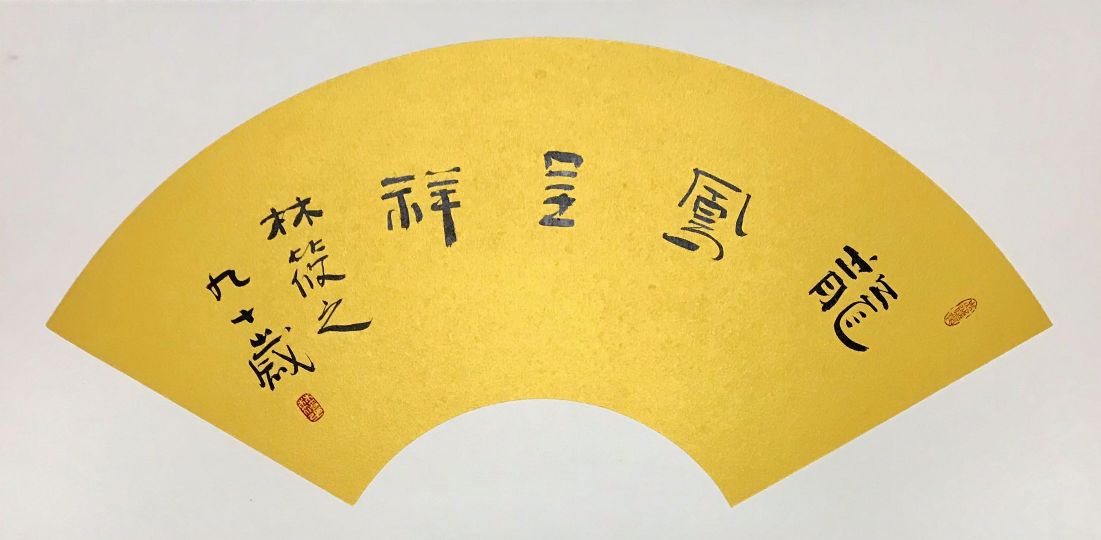 龍鳳呈祥
林筱之
九十歲